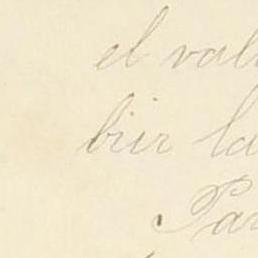 el val
bir la
Pa